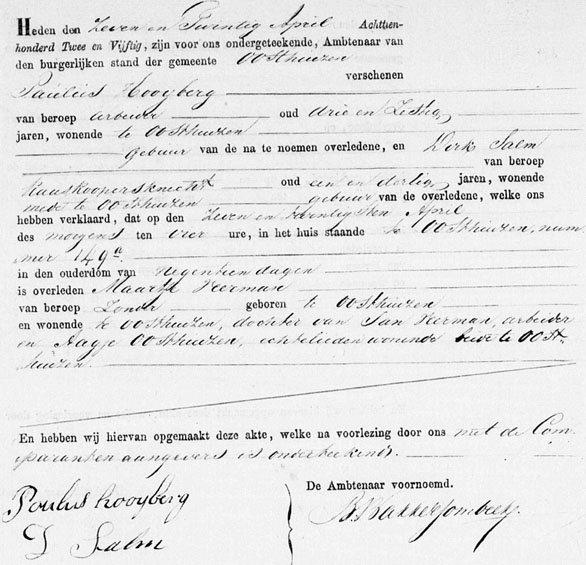 Heden den Zeven en Twintig April Achttien-
honderd Twee en Vijftig, zijn voor ons ondergeteekende, Ambtenaar van
den burgerlijken stand der gemeente OOSthuizen
verschenen
Paulus Hooyberg
van beroep arbeider oud drie en Zestig
jaren, wonende te OOSthuizen
gebuur van de na te noemen overledene, en Dirk Salm
van beroep
Kaaskoopersknecht oud een en dertig jaren, wonende
mede te OOSthuizen gebuur van de overledene, welke ons
hebben verklaard, dat op den Zeven en twintigsten April
des morgens ten vier ure, in het huis staande te OOSthuizen, num
mer 149a
in den ouderdom van negentien dagen
is overleden Maartje Veerman
van beroep Zonder geboren te OOSthuizen
en wonende te OOSthuizen, dochter van Jan Veerman, arbeider
en Aagje OOSthuizen, echtelieden wonende beide te OOSt-
huizen.
En hebben wij hiervan opgemaakt deze akte, welke na voorlezing door ons met de Com
paranten aangevers is onderteekend.
De Ambtenaar voornoemd.
Poulus hooyberg
D Salm